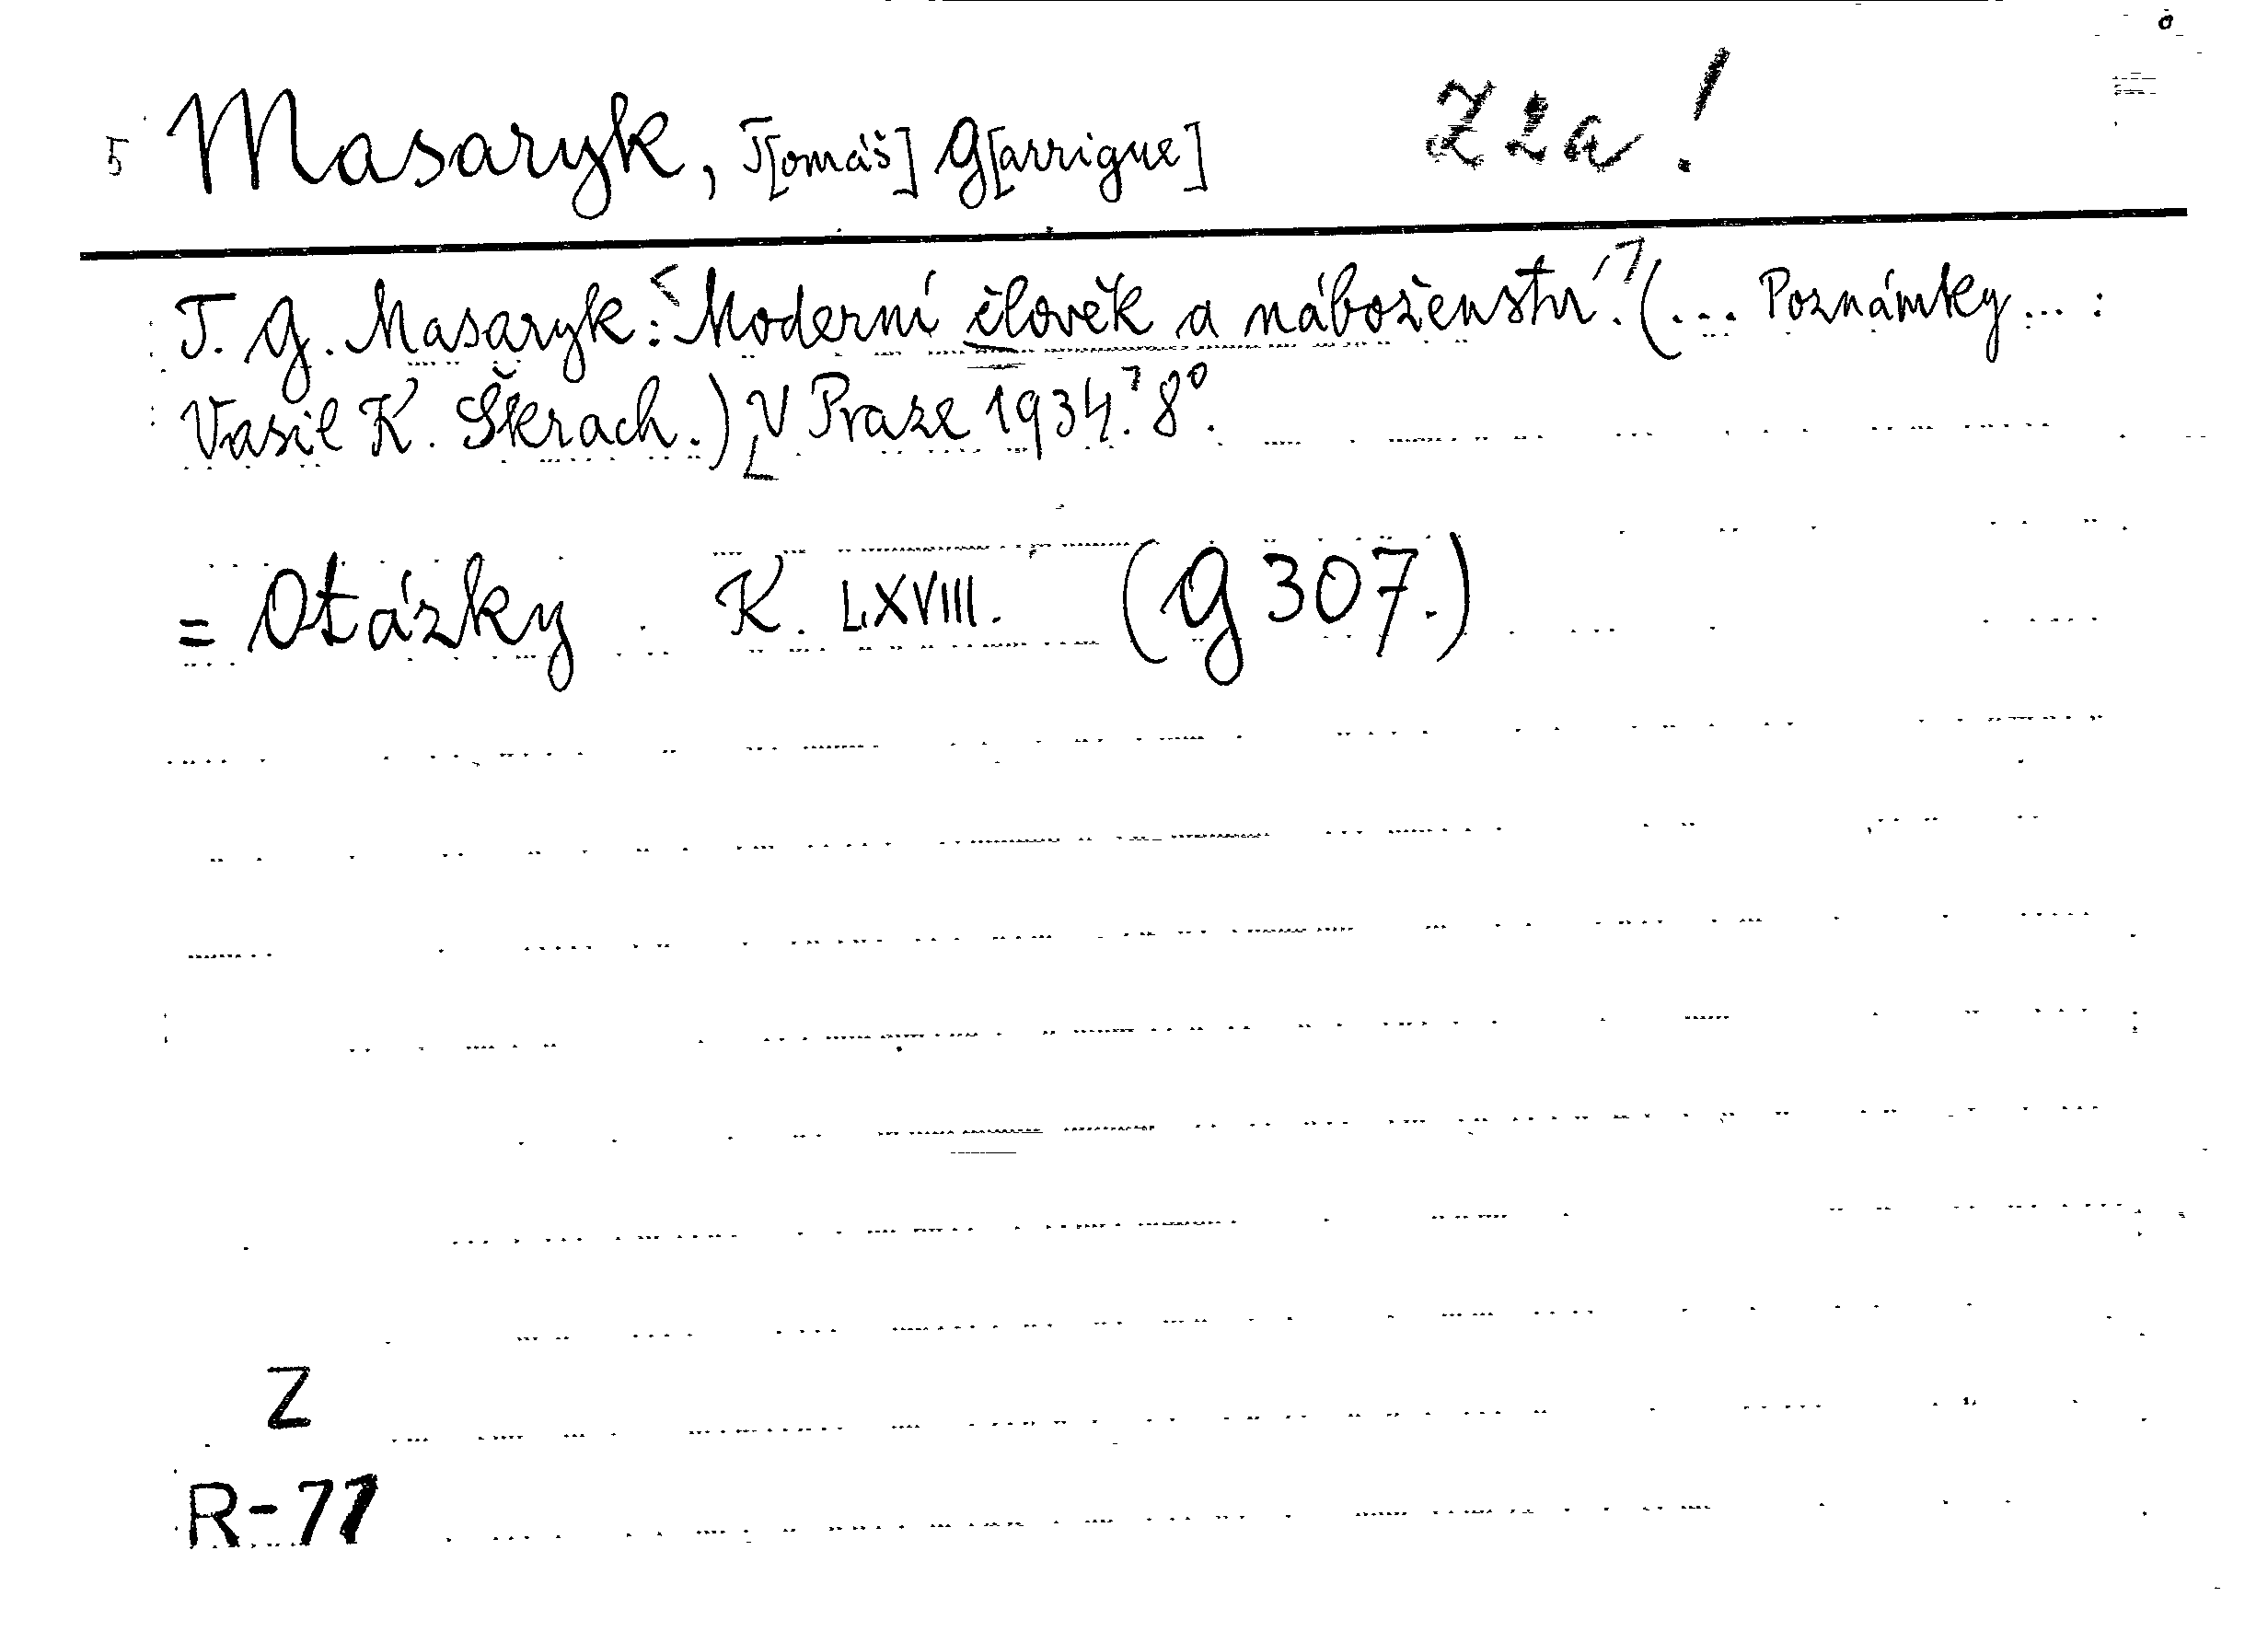 5 Masaryk, T[omáš] G[arrigue] Z 2a!
T. G. Masaryk: Moderní člověk a náboženství. (... Poznámky ... :
Vasil K. Škrach.) V Praze 1934. 8°.
= Otázky K. LXVIII. (G 307.)
Z
R-77